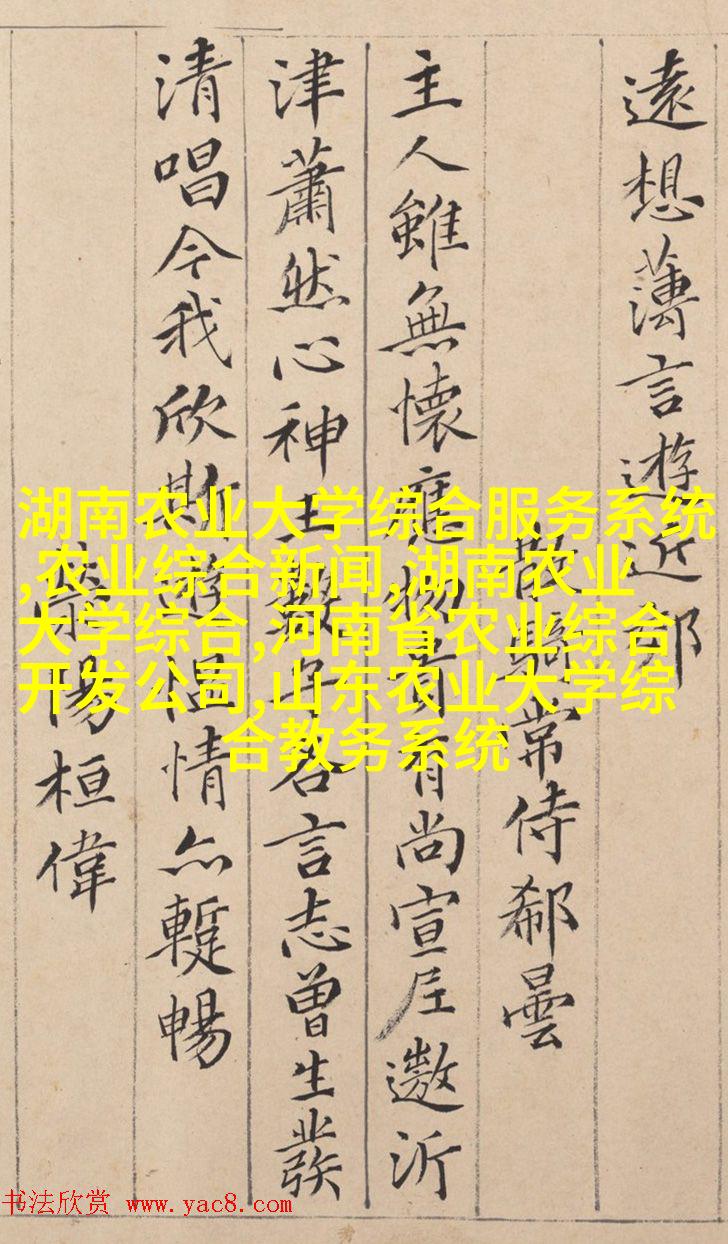 遠想蕩言遊近郊
散騎常侍郗曇
主人雖無懷應物貴有尚宣尼遨沂
津蕭然心神王數子各言志曾生發
清唱今我欣斯遊慍情亦蹔暢
滎陽桓偉
湖南农业大学综合服务系统
,农业综合新闻,湖南农业
大学综合,河南省农业综合
开发公司,山东农业大学综
合教务系统
书法欣赏 www.yac8.com